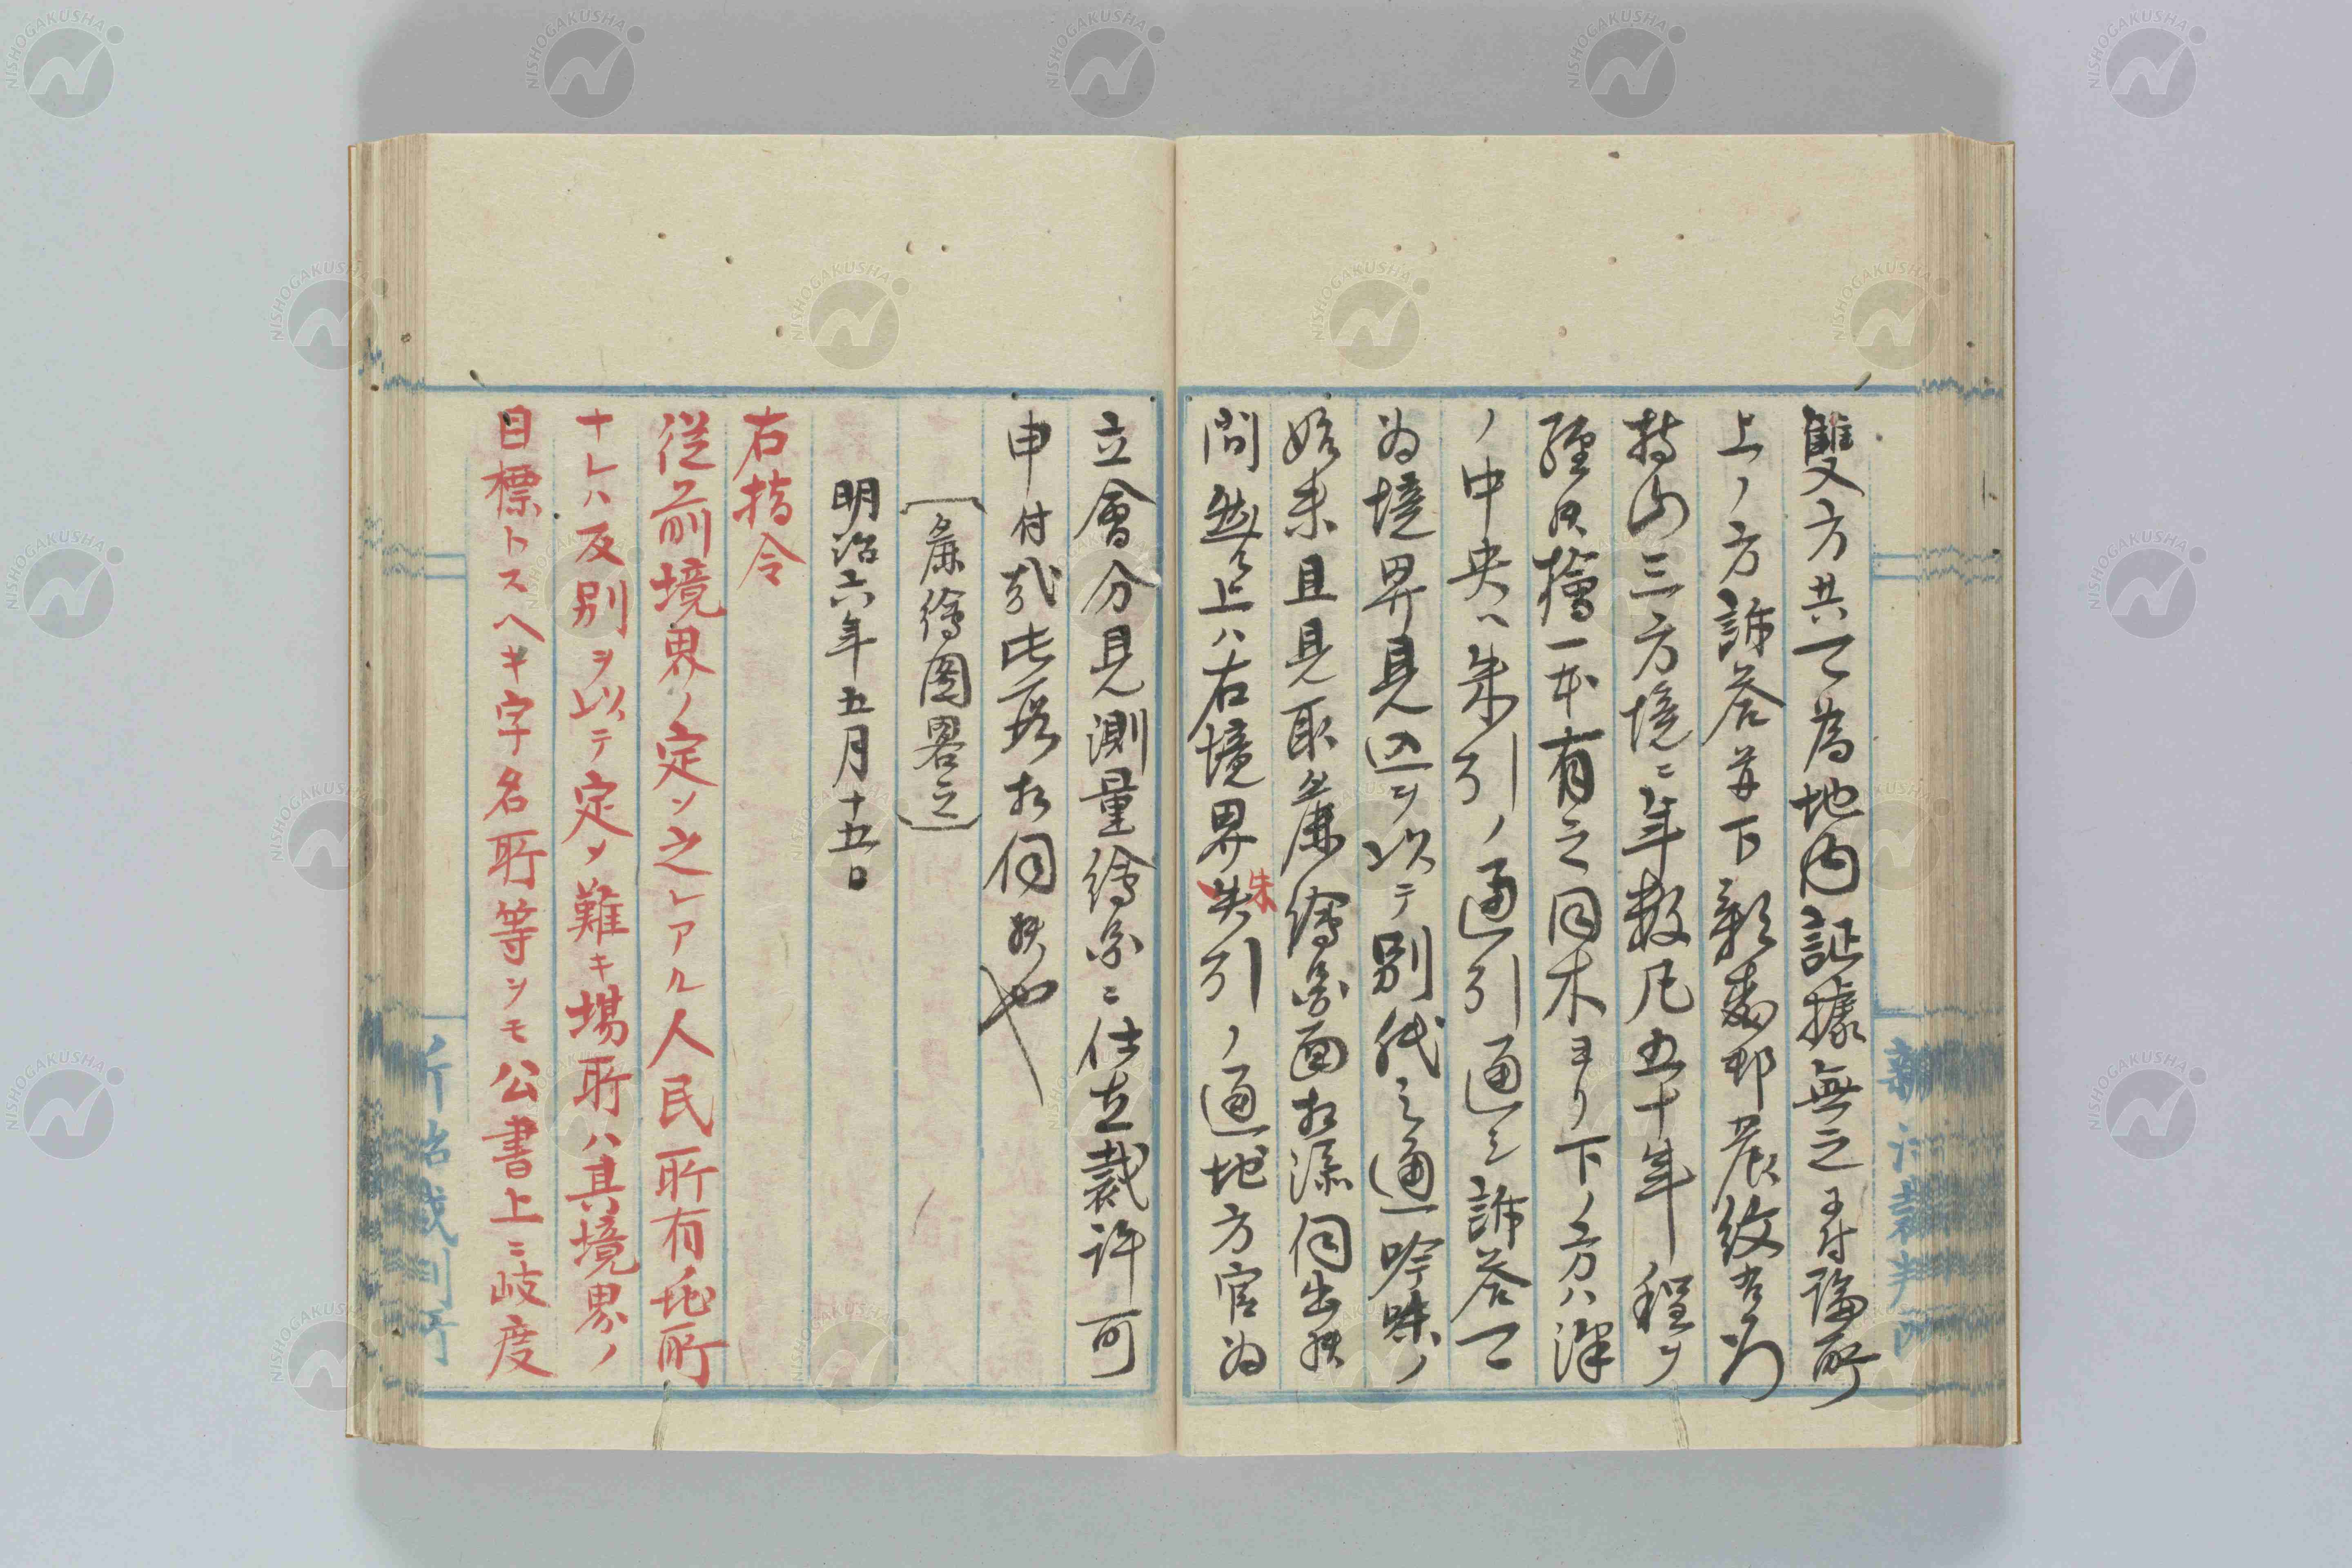 雙方共ニ為地内証據無之ニ付論所
上ノ方訴答并下彰
持山三方境ニ年数凡五十年程ヲ
経候檜一本有之同木ヨリ下ノ方ハ澤
ノ中央ハ朱引ノ通引通シ訴答ニ
為境界見込ヲ以テ別紙之通吟味ノ
始末且見取麁繪圖面相添伺出候
間然ル上ハ右境界失引ノ通地方官為
朱
立會分見測量繪圖ニ仕立裁許可
申付哉此段相伺候也
〔麁繪圖畧之〕
明治六年五月十五日
右指令
従前境界ノ定ツ之レアル人民所有地所
ナレハ反別ヲ以テ定ツ難キ場所ハ其境界ノ
目標トスヘキ字名所等ツモ公書上ニ岐度
NISHOGAKUSHA